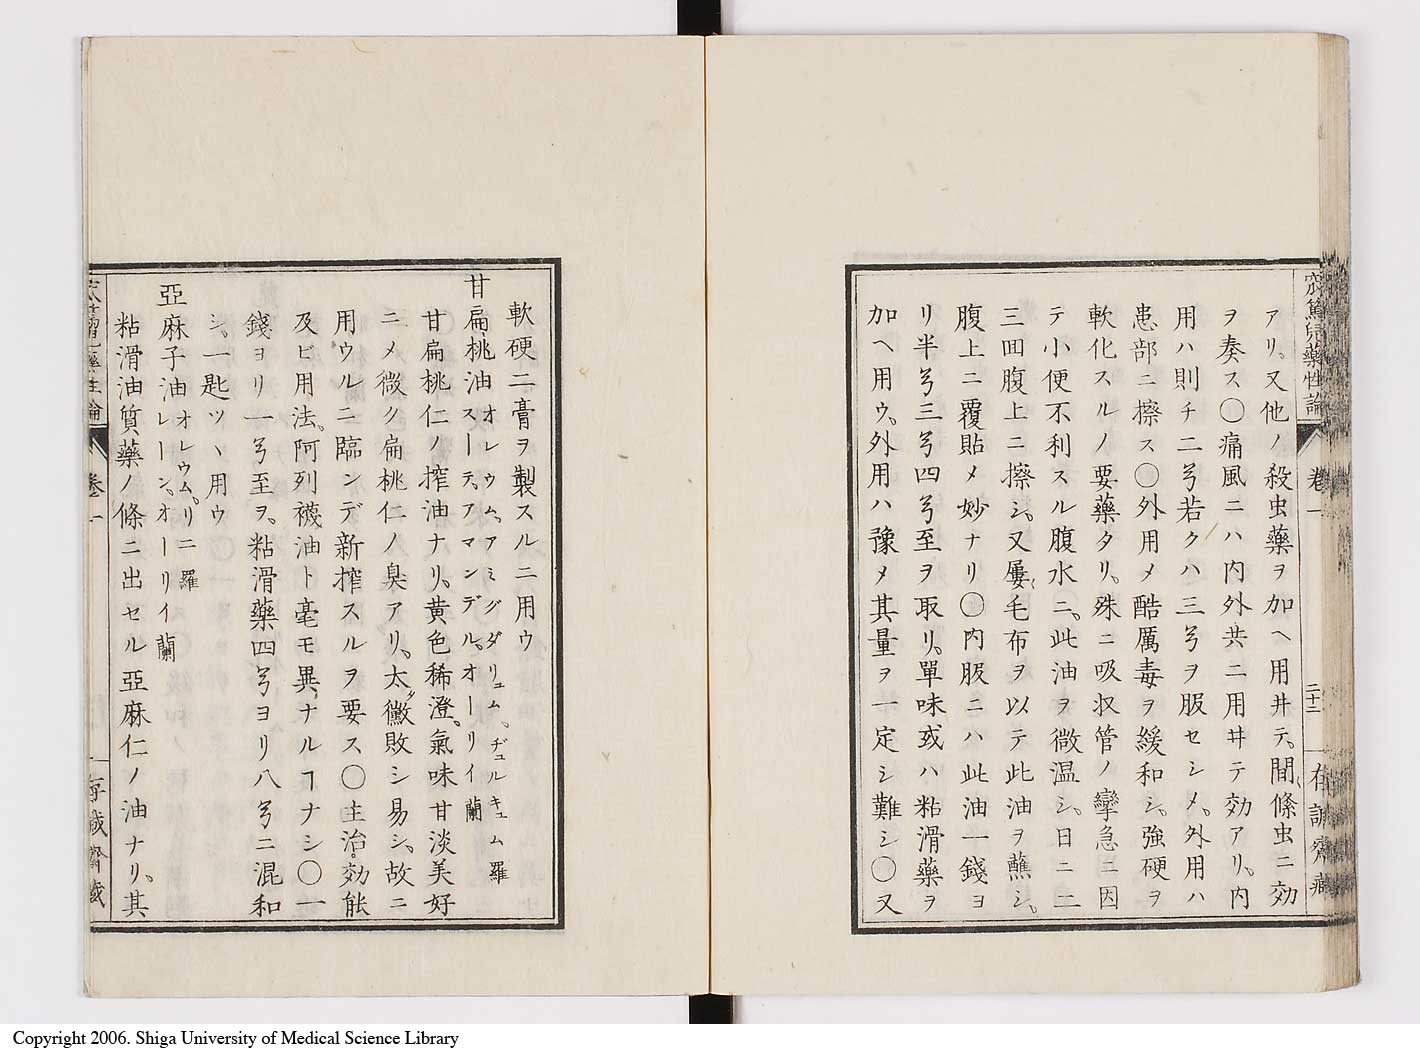 窊篤兒藥性論
卷一
二十二
存誠齋藏
アリ。又他ノ殺虫藥ヲ加ヘ用井テ。間〻條虫ニ効
ヲ奏ス〇痛風ニハ内外共ニ用井テ効アリ。内
用ハ則チ二兮若クハ三兮ヲ服セシメ。外用ハ
患部ニ擦ス〇外用メ酷厲毒ヲ緩和シ。強硬ヲ
軟化スルノ要藥タリ。殊ニ吸収管ノ攣急ニ因
テ小便不利スル腹水ニ。此油ヲ微温シ。日ニ二
三回腹上ニ擦シ。又屢〻毛布ヲ以テ此油ヲ蘸シ。
腹上ニ覆貼メ妙ナリ〇内服ニハ此油一錢ヨ
リ半兮三兮四兮至ヲ取リ。單味或ハ粘滑藥ヲ
加ヘ用ウ。外用ハ豫メ其量ヲ一定シ難シ〇又
軟硬二膏ヲ製スルニ用ウ
甘扁桃油 オレウム。アミグダリュム。ヂュルキュム 羅
スーテ。アマンデル。オーリイ 蘭
甘扁桃仁ノ搾油ナリ。黄色稀澄。氣味甘淡美好
ニメ微ク扁桃仁ノ臭アリ。太ダ黴敗シ易シ。故ニ
用ウルニ臨ンデ新搾スルヲ要ス〇主治。効能
及ビ用法。阿列襪油ト毫モ異ナルヿナシ〇一
錢ヨリ一兮至ヲ。粘滑藥四兮ヨリ八兮ニ混和
シ。一匙ツヽ用ウ
亞麻子油 オレウム。リニ 羅
レーン。オーリイ 蘭
粘滑油質藥ノ條ニ出セル亞麻仁ノ油ナリ。其
卷一
存誠齋藏
Copyright 2006. Shiga University of Medical Science Library